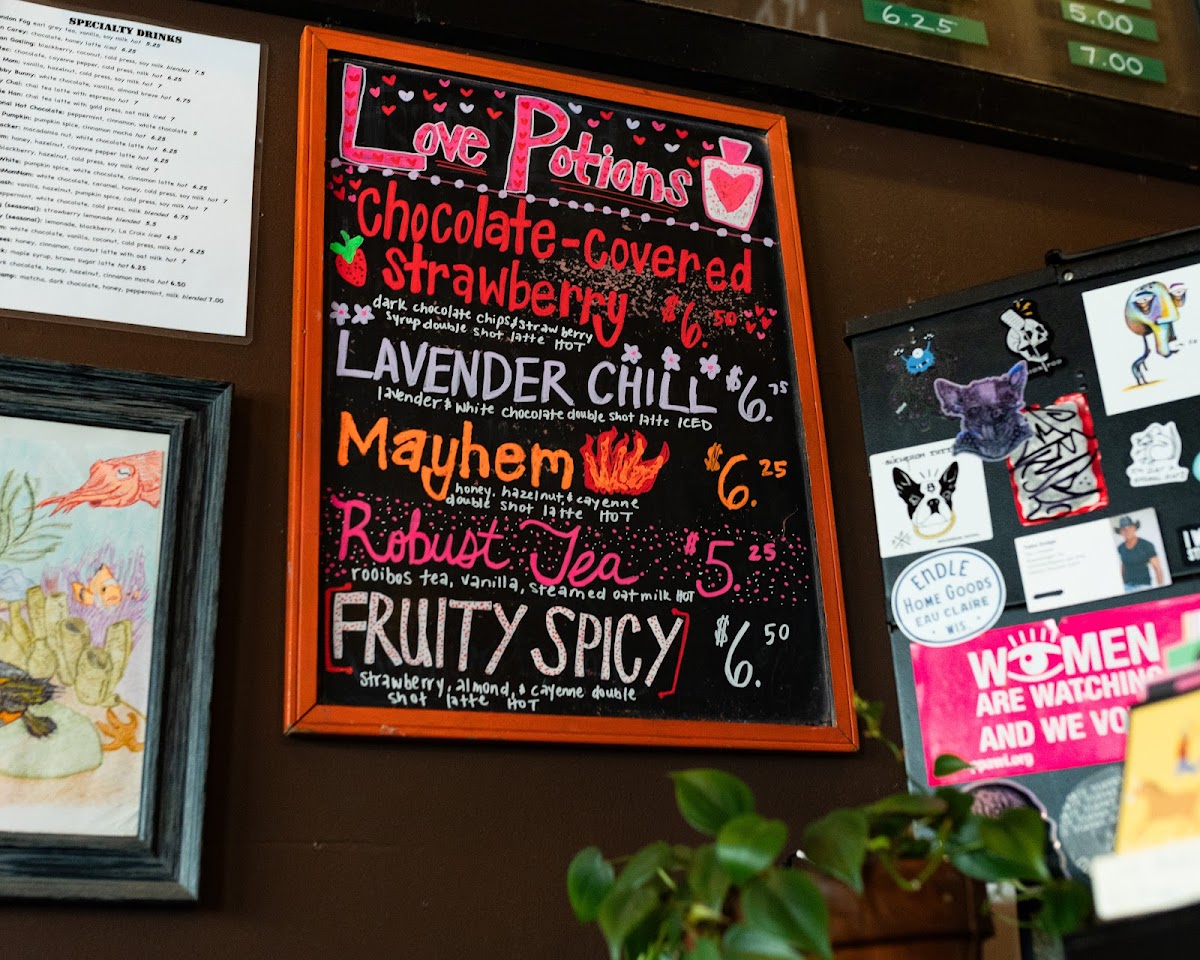 SPECIALTY DRINKS
earl grey tea, vanilla, soy milk hot 5.25
chocolate, honey latte iced 6.25
blackberry, coconut, cold press, soy milk blended 7.5
chocolate, cayenne pepper, milk hot 6.25
Mom: vanilla, hazelnut, cold press, soy milk hot 7
Bunny: white chocolate, vanilla, almond breve hot 6.75
Chai: chai tea latte with espresso hot 7
Han: chai tea latte with gold press, oat milk iced 7
Hot Chocolate: peppermint, cinnamon, white chocolate 5
Pumpkin: pumpkin spice, cinnamon mocha hot 6.25
macadamia nut, white chocolate latte hot 6.25
honey, hazelnut, cayenne pepper latte hot 6.25
blackberry, hazelnut, cold press, soy milk iced 7
White: pumpkin spice, white chocolate, cinnamon latte hot 6.25
white chocolate, caramel, honey, cold press, soy milk hot 7
vanilla, hazelnut, pumpkin spice, cold press, soy milk hot 7
peppermint, white chocolate, cold press, milk blended 6.75
(seasonal): strawberry lemonade blended 5.5
(seasonal): lemonade, blackberry, La Croix iced 4.5
white chocolate, vanilla, coconut, cold press, milk hot 6.25
honey, cinnamon, coconut latte with oat milk hot 7
maple syrup, brown sugar latte hot 6.25
chocolate, honey, hazelnut, cinnamon mocha hot 6.50
matcha, dark chocolate, honey, peppermint, milk blended 7.00
6.25
5.00
7.00
Love Potions
Chocolate-Covered
Strawberry $6.50
dark chocolate chips & strawberry
syrup double shot latte HOT
LAVENDER CHILL $6.75
lavender & white chocolate double shot latte ICED
Mayhem $6.25
honey, hazelnut, & cayenne
double shot latte HOT
Robust Tea $5.25
rooibos tea, vanilla, steamed oat milk HOT
[FRUITY SPICY] $6.50
strawberry, almond, & cayenne double
shot latte HOT
ENDLE
HOME GOODS
EAU CLAIRE
WIS
WOMEN
ARE WATCHING
AND WE VO